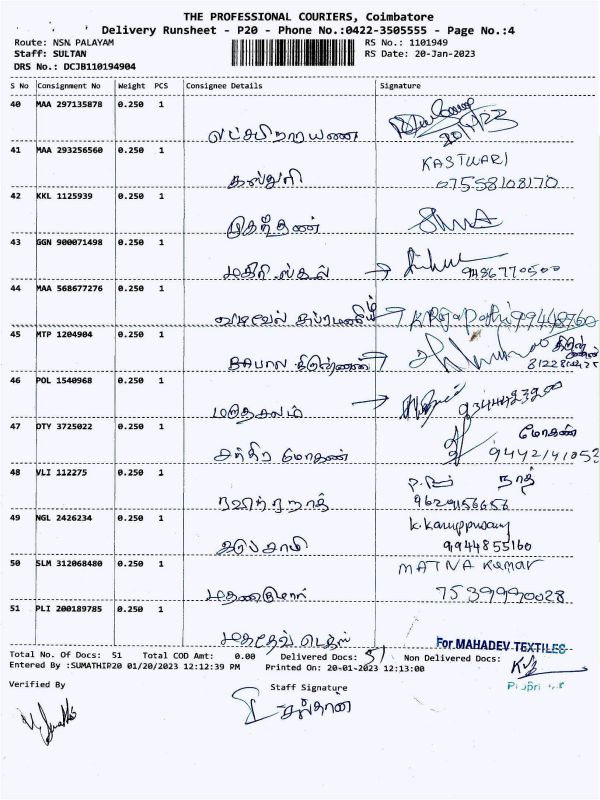 THE PROFESSIONAL COURIERS, Coimbatore
Delivery Runsheet - P20 - Phone No.:0422-3505555 - Page No.:4
Route: NSN PALAYAM RS No.: 1101949
Staff: SULTAN RS Date: 20-Jan-2023
DRS No.: DCJB110194904
S No Consignment No Weight PCS Consignee Details Signature
40 MAA 297135878 0.250 1
லட்சுமிநாராயணன்
41 MAA 293256560 0.250 1 KASTWARI
கஸ்தூரி 07558108170
42 KKL 1125939 0.250 1
43 GGN 900071498 0.250 1
9486770500
44 MAA 568677276 0.250 1
வடிவேல்
45 MTP 1204904 0.250 1
46 POL 1540968 0.250 1
மருதாசலம்
47 DTY 3725022 0.250 1 மோகன்
சந்திர மோகன் 9442141053
48 VLI 112275 0.250 1 நாத்
9629156656
49 NGL 2426234 0.250 1 K. Karuppusamy
9944855160
50 SLM 312068480 0.250 1 MATNA Kumar
மதன்குமார் 7539990028
51 PLI 200189785 0.250 1
For MAHADEV TEXTILES
Total No. Of Docs: 51 Total COD Amt: 0.00 Delivered Docs: 51 Non Delivered Docs:
Entered By :SUMATHIP20 01/20/2023 12:12:39 PM Printed On: 20-01-2023 12:13:00
Verified By Staff Signature
சுல்தான்